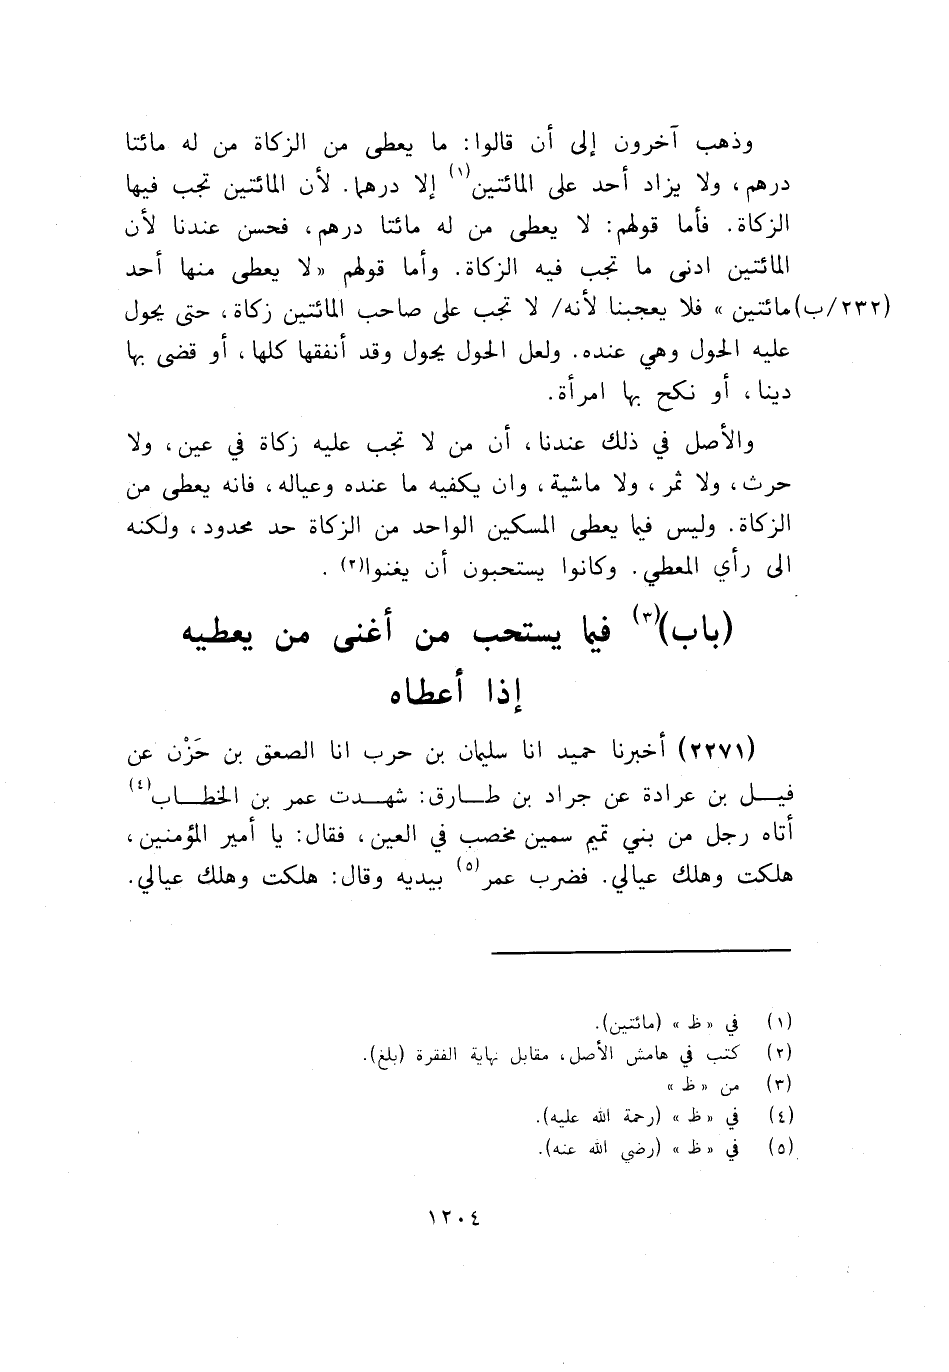 وذهب آخرون إلى أن قالوا: ما يعطى من الزكاة من له مائتا
درهم، ولا يزاد أحد على المائتين(١) إلا درهما. لأن المائتين تجب فيها
الزكاة. فأما قولهم: لا يعطى من له مائتا درهم، فحسن عندنا لأن
المائتين ادنى ما تجب فيه الزكاة. وأما قولهم «لا يعطى منها أحد
(٢٣٢/ب) مائتين» فلا يعجبنا لأنه/ لا تجب على صاحب المائتين زكاة، حتى يحول
عليه الحول وهي عنده. ولعل الحول يحول وقد أنفقها كلها، أو قضى بها
دينا، أو نكح بها امرأة.
والأصل في ذلك عندنا، أن من لا تجب عليه زكاة في عين، ولا
حرث، ولا ثمر، ولا ماشية، وان يكفيه ما عنده وعياله، فانه يعطى من
الزكاة. وليس فيما يعطى المسكين الواحد من الزكاة حد محدود، ولكنه
الى رأي المعطي. وكانوا يستحبون أن يغنوا(٢).
(باب)(٣) فيما يستحب من أغنى من يعطيه
إذا أعطاه
(٢٢٧١) أخبرنا حميد انا سليمان بن حرب انا الصعق بن حَزْن عن
فيـل بن عرادة عن جراد بن طـارق: شهـدت عمر بن الخطـاب(٤)
أتاه رجل من بني تميم سمين مخصب في العين، فقال: يا أمير المؤمنين،
هلكت وهلك عيالي. فضرب عمر(٥) بيديه وقال: هلكت وهلك عيالي.
(١) في «ظ» (مائتين).
(٢) كتب في هامش الأصل، مقابل نهاية الفقرة (بلغ).
(٣) من «ظ»
(٤) في «ظ» (رحمة الله عليه).
(٥) في «ظ» (رضي الله عنه).
١٢٠٤